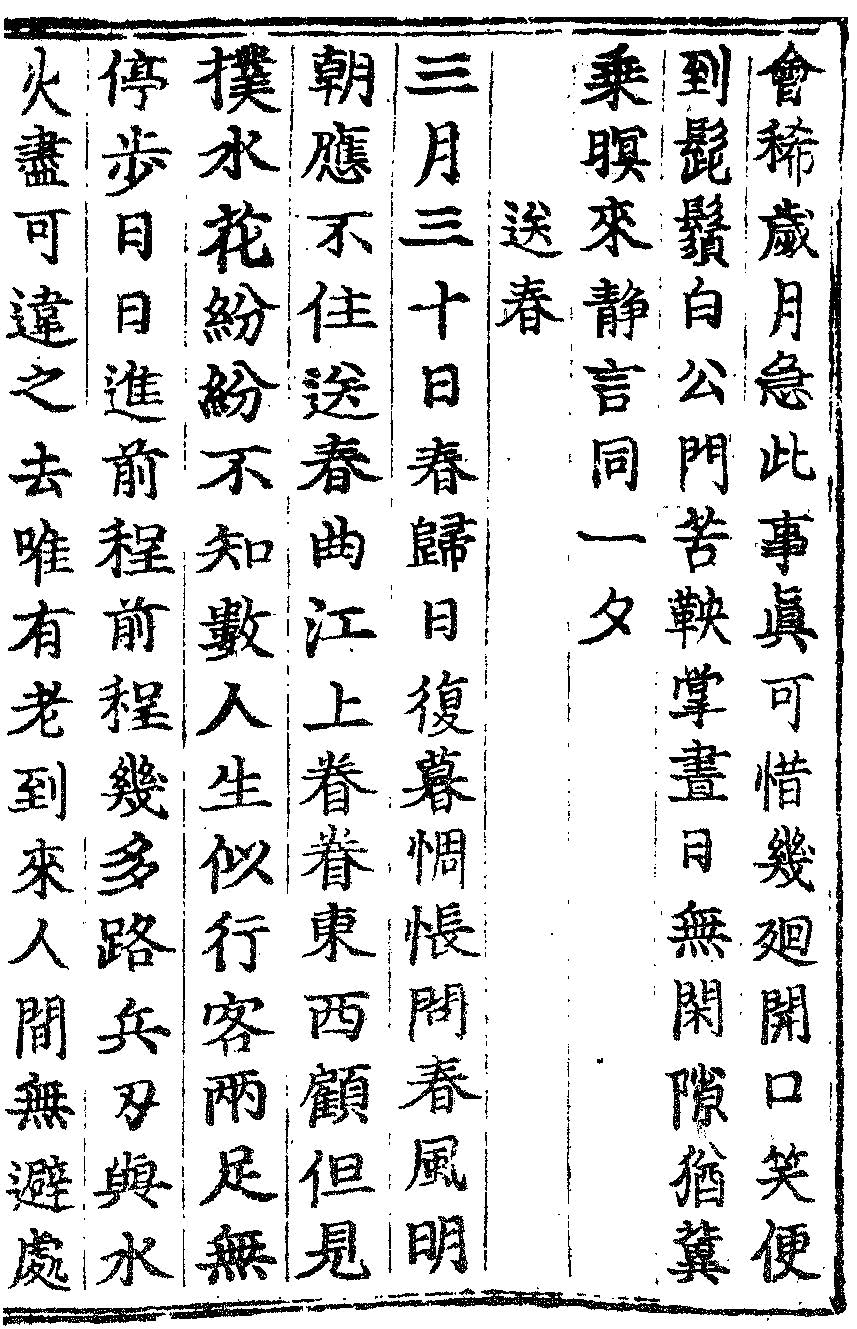 會稀歲月急此事眞可惜幾廻開口笑便
到髭鬚白公門苦鞅掌晝日無閑隙猶冀
乗暝來静言同一夕
送春
三月三十日春歸日復暮惆悵問春風明
朝應不住送春曲江上眷眷東西顧但見
撲水花紛紛不知數人生似行客兩足無
停步日日進前程前程幾多路兵刃與水
火盡可違之去唯有老到來人間無避處